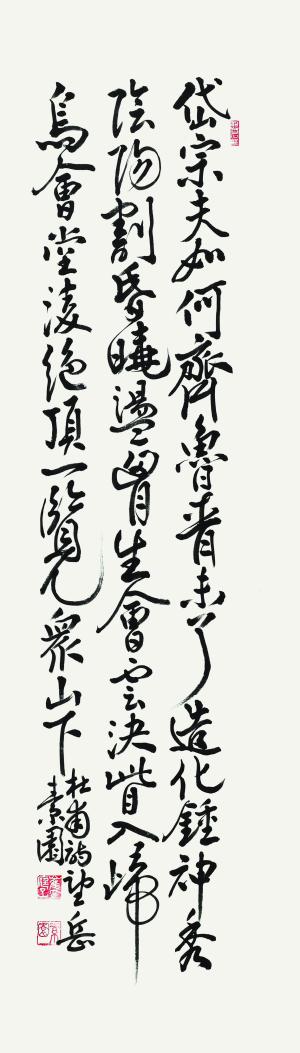 岱宗夫如何齊魯青未了造化鍾神秀
陰陽割昏曉盪胷生會雲決眥入歸
鳥會當凌絶頂一覽衆山下
杜甫詩望岳
素園